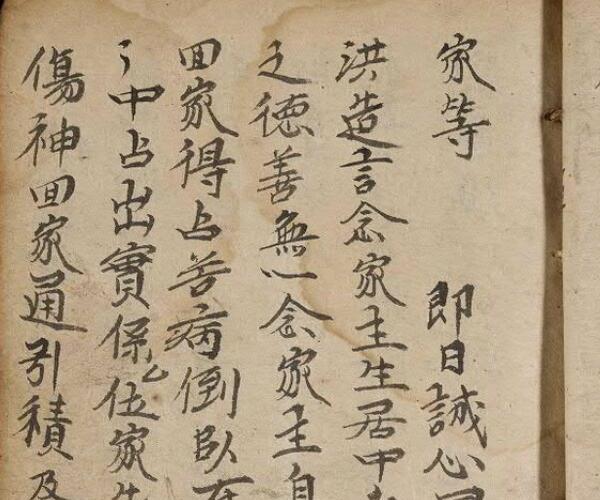 家等 即日誠心
洪造言念家主生居中
之德善無一念家主自
回家得占苦病倒臥在
中占出實係位家先
傷神回家通引積及